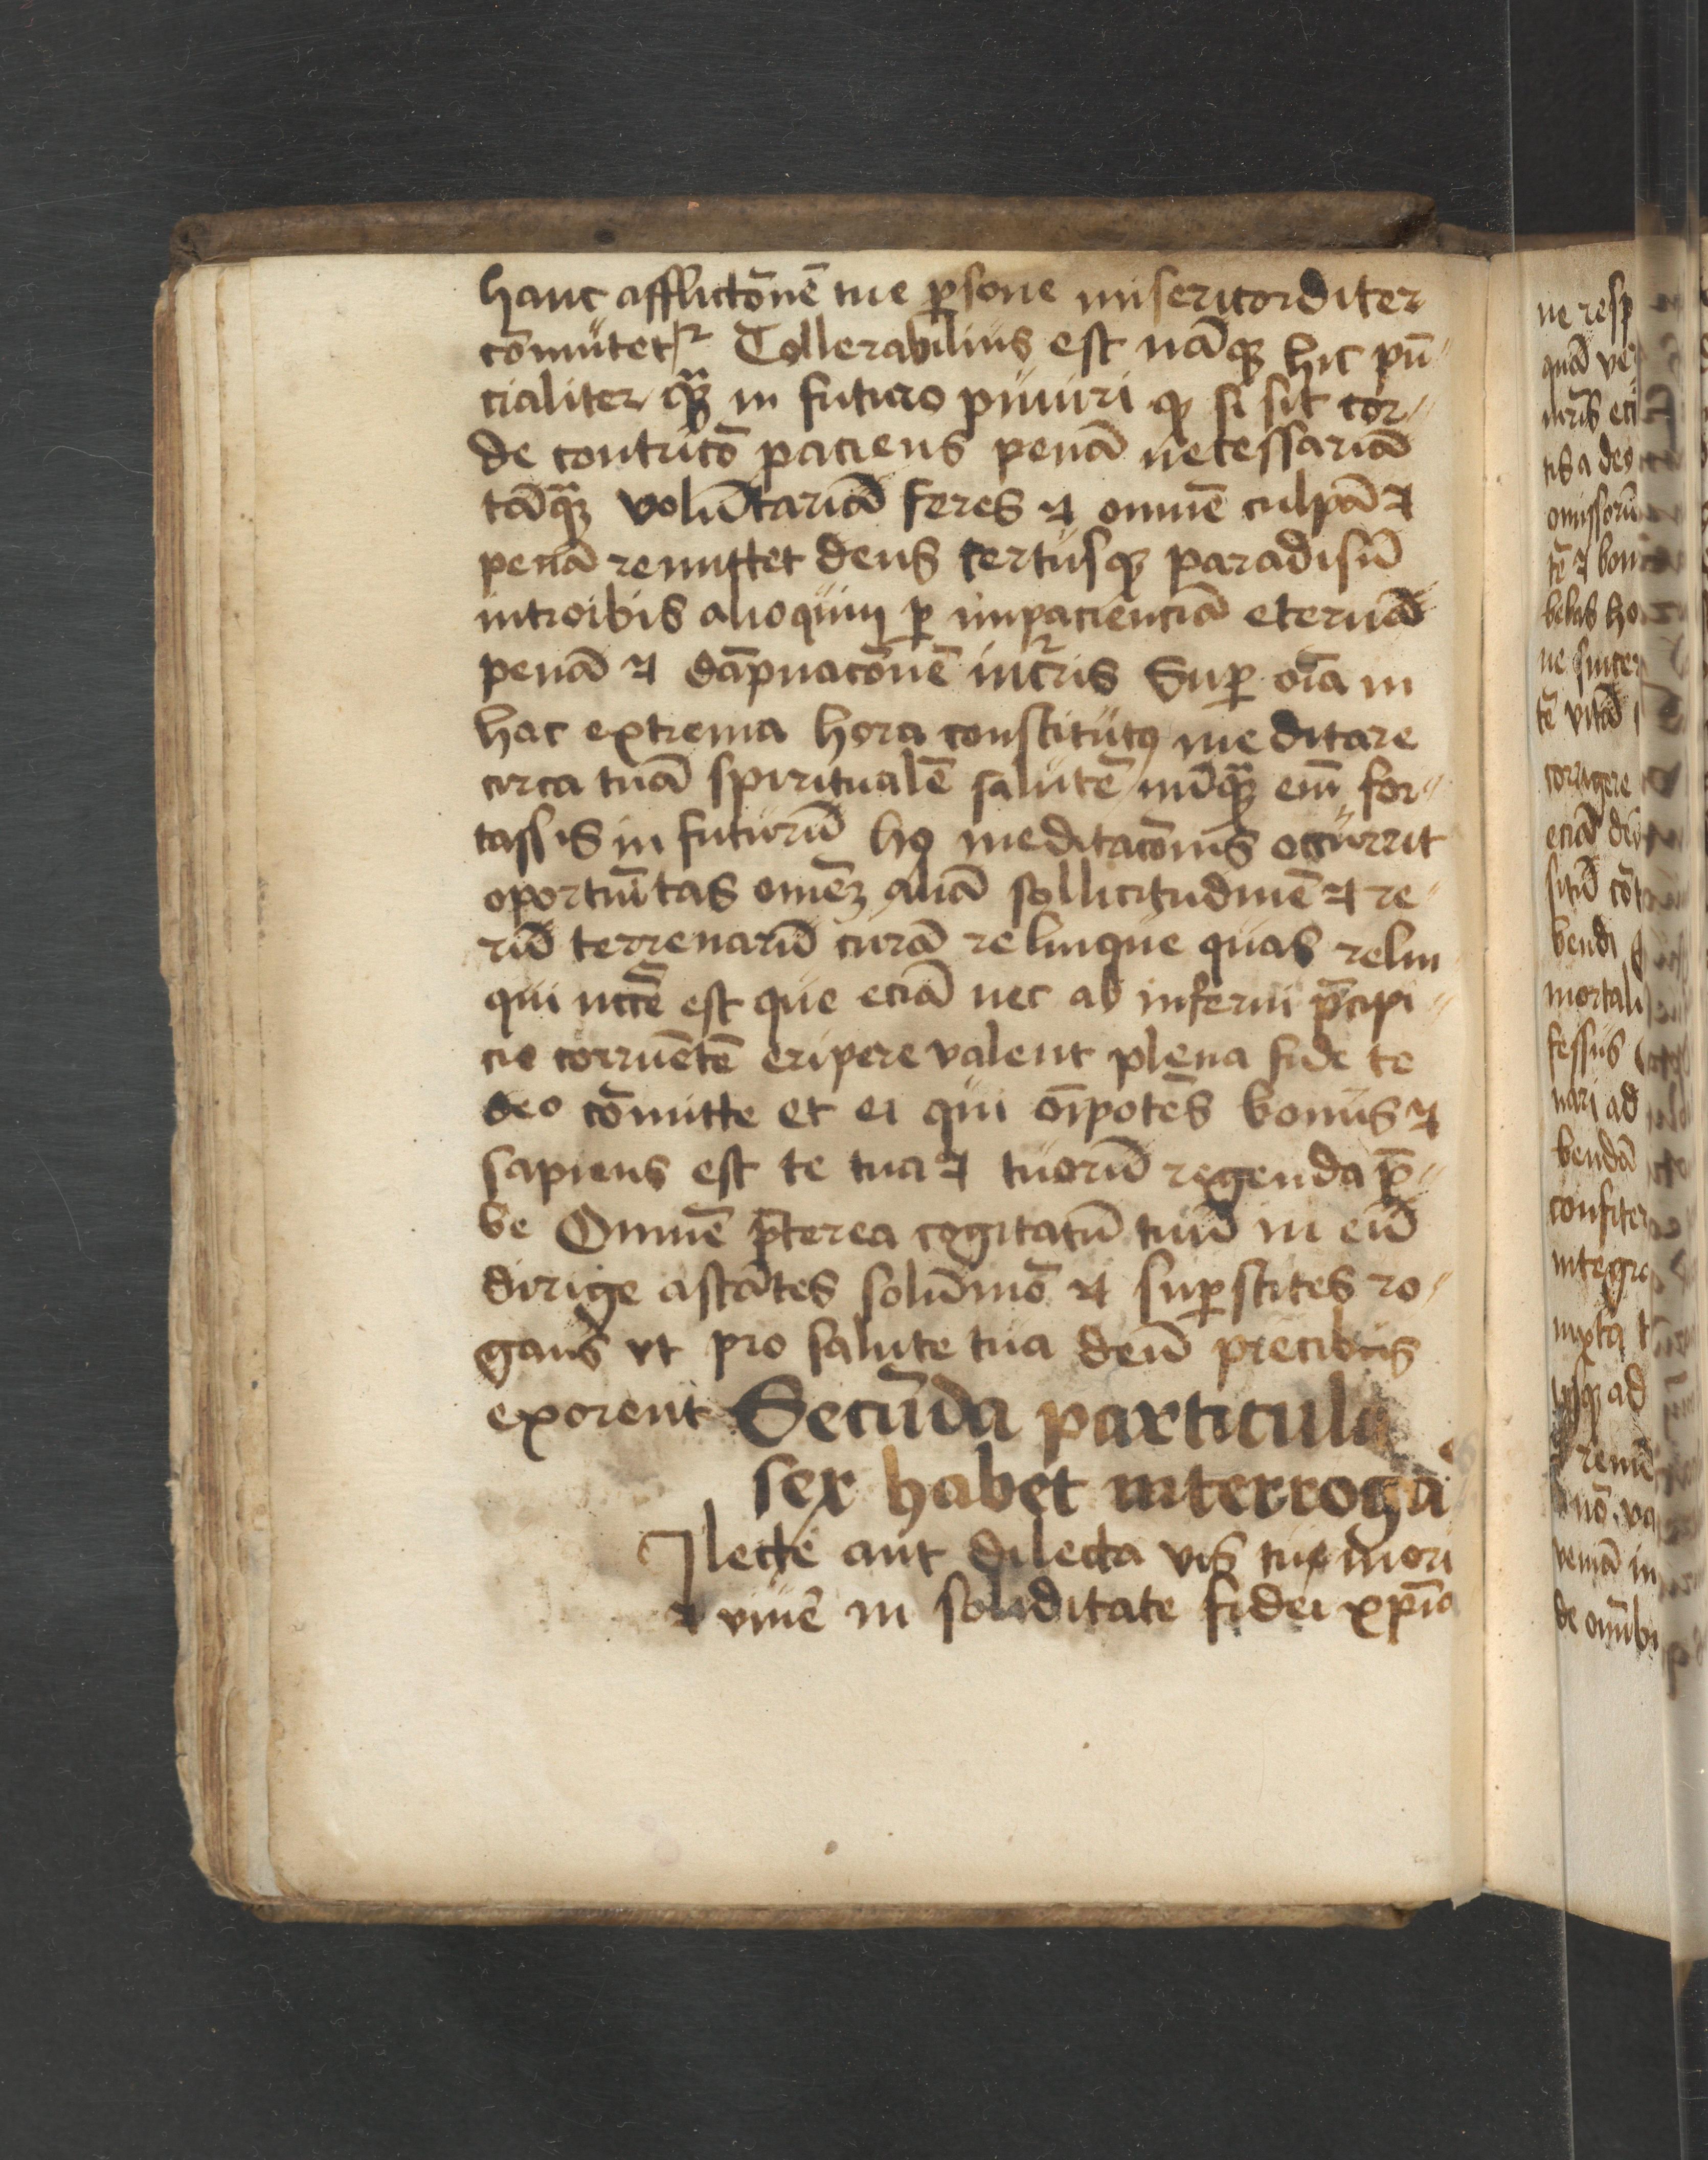 hanc afflictōnē tue ꝑsone misericorditer
cōmutetꝛ Tollerabilius est nāqꝫ hic pū
cialiter qͣꝫ in futuro puniri qꝫ si sit cor
de contrito paciens penā necessariā
tāqͣꝫ volūtariā feres ⁊ omnē culpā ⁊
penā remittet deus certusqꝫ paradisū
introibis alioquin ꝑ impacienciā eternā
penā ⁊ dāpnacōnē incʳris Suꝑ oīa in
hac extrema hora constitutꝰ meditare
circa tuā spiritualē salutē nūqͣꝫ eni̅ for
tassis in futurū hꝰ meditacōnis occurrit
oportūitas omēꝫ aliā sollicitudinē ⁊ re
rū terrenarū curā relinque quas relin
qui nccē est que eciā nec ab inferni p̄cipi
cio corruētē eripere valent plena fide te
deo cōmitte et ei qui oi̅potēs bonus ⁊
sapiens est te tua ⁊ tuorū regenda p̄
be Omnē p̄terea cogitatū tuū in eū
dirige astātes solūmō ⁊ suꝑstites ro
gans vt pro salute tua deū precibus
exorent Secūda particula
sex habet interroga
Ilecte aut dilecta vis tu mori
⁊ viuē in soliditate fidei xp̄ia
ne resp
quā ve
tis a deo
omissorū
tē ⁊ boni
ne sincer
tē vitā
corrigere
eciā
bendi
mortali
fessus
nari ad
bendā
confiter
integre
iuxta t
vsqꝫ ad
nō va
veniā in
de omībꝰ